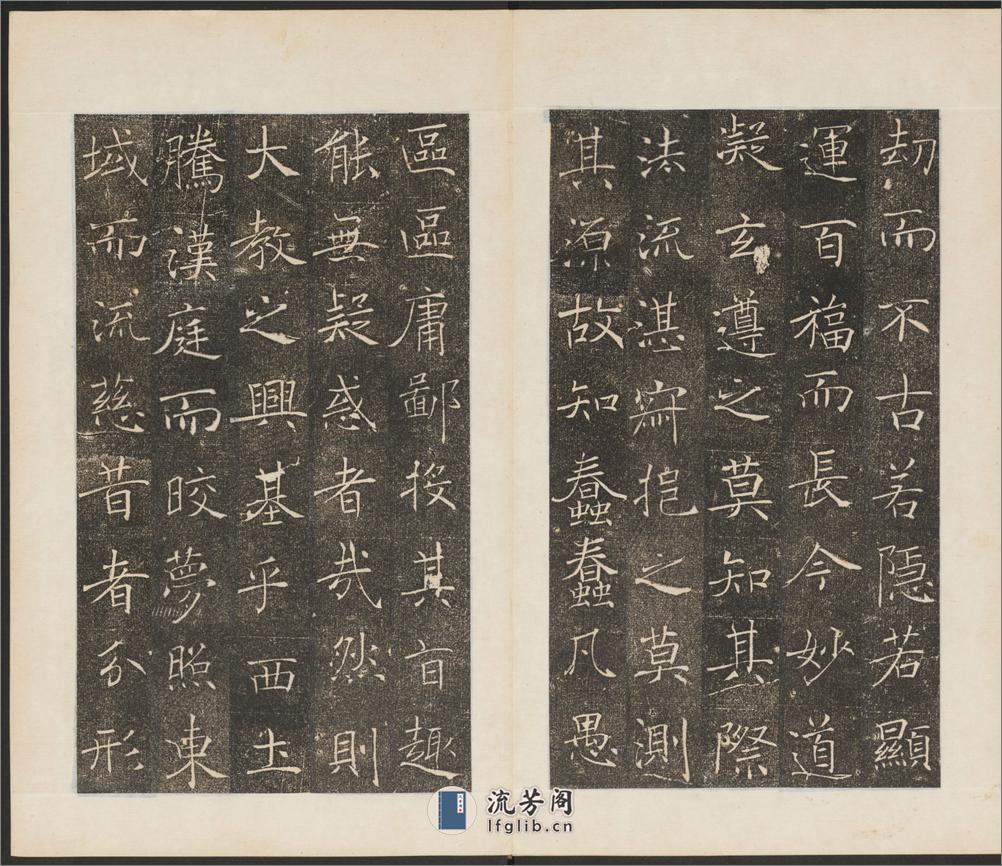 劫而不古若隱若顯
運百福而長今妙道
凝玄遵之莫知其際
法流湛寂挹之莫測
其源故知蠢蠢凡愚
區區庸鄙投其旨趣
能無疑惑者哉然則
大教之興基乎西土
騰漢庭而皎夢照東
域而流慈昔者分形
流芳阁
lfglib.cn